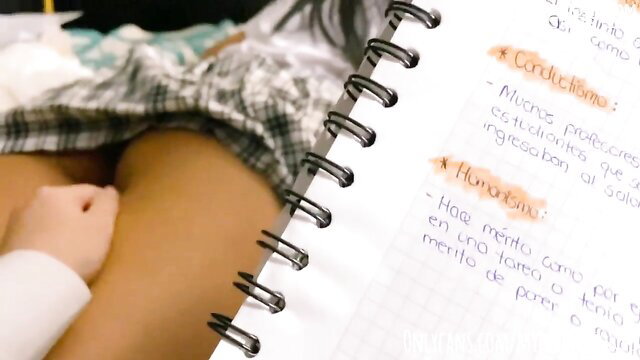 el instinto
asi como
* Conductismo:
- Muchos profesores
estudiantes que
ingresaban al
* Humanismo:
- Hace mérito como por
en una tarea o tenia
merito de poner o